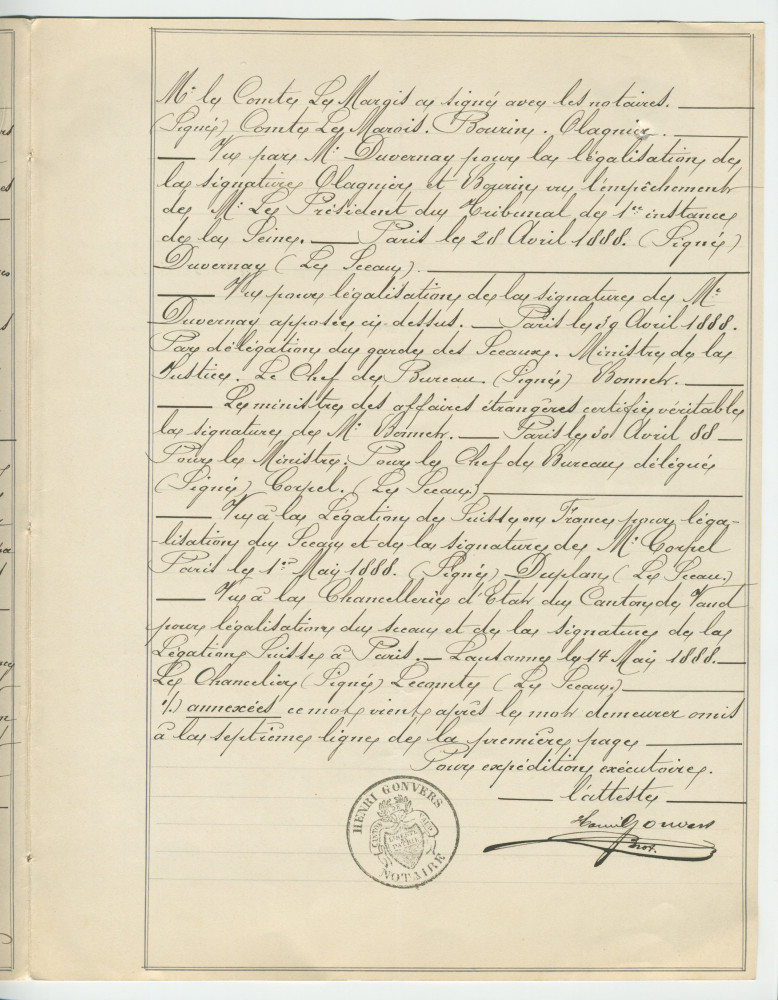 Mr. le Comte Le Marois a signé avec les notaires.
(Signé) Comte Le Marois. Bourin. Olagnier.
Vu par Mr. Duvernay pour la légalisation de
la signature Olagnier et Bourin vu l'empêchement
de Mr. Le Président du Tribunal de 1re instance
de la Seine. Paris le 28 Avril 1888. (Signé)
Duvernay (Le Sceau).
Vu pour légalisation de la signature de Mr.
Duvernay apposée ci-dessus. Paris le 30 Avril 1888.
Par délégation du garde des Sceaux. Ministre de la
Justice. Le Chef de Bureau. (Signé) Bonnet.
Le ministre des affaires étrangères certifie véritable
la signature de Mr. Bonnet. Paris le 30 Avril 88
Pour le Ministre: Pour le Chef de Bureau délégué
(Signé) Corpel. (Le Sceau.)
Vu à la Légation de Suisse en France pour léga-
-lisation du Sceau et de la signature de Mr. Corpel
Paris le 1er Mai 1888. (Signé) Duplan (Le Sceau.)
Vu à la Chancellerie d'Etat du Canton de Vaud
pour légalisation du sceau et de la signature de la
Légation Suisse à Paris. Lausanne le 14 Mai 1888.
Le Chancelier (Signé) Lecomte (Le Sceau.)
annexées ce mot vient après le mot demeurer omis
à la septième ligne de la première page
Pour expédition exécutoire.
l'atteste
Henri Gonvers
not.
HENRI GONVERS
CANTON DE VAUD
LIBERTÉ ET PATRIE
NOTAIRE